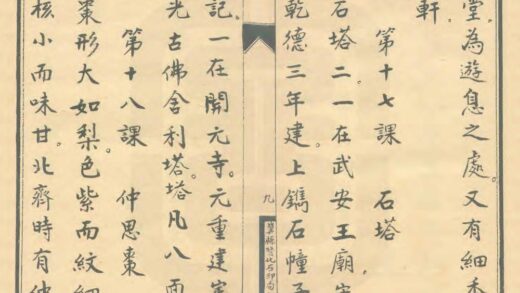 堂。為遊息之處。又有細香
軒。
第十七課 石塔
石塔二。一在武安王廟。宋
乾德三年建。上鐫石幢子
九
記。一在開元寺。元重建定
光古佛舍利塔。塔凡八面
第十八課 仲思棗
棗形大如梨。色紫而紋細
核小而味甘。北齊時有仲